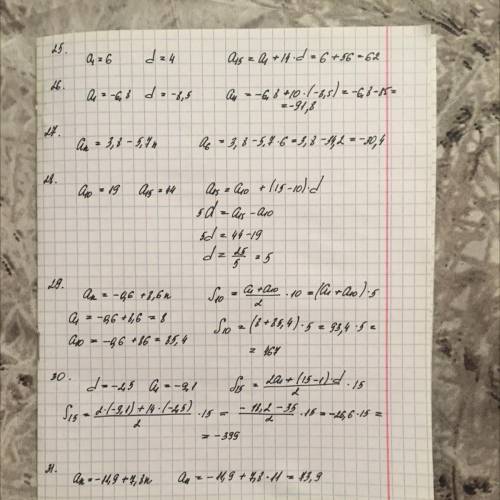 25.
a₁ = 6 d = 4 a₁₅ = a₁ + 14 · d = 6 + 56 = 62
26.
a₁ = -6,8 d = -8,5 a₁₁ = -6,8 + 10 · (-8,5) = -6,8 - 85 =
= -91,8
27.
aₙ = 3,8 - 5,7n a₆ = 3,8 - 5,7 · 6 = 3,8 - 34,2 = -30,4
28.
a₁₀ = 19 a₁₅ = 44 a₁₅ = a₁₀ + (15-10) · d
5d = a₁₅ - a₁₀
5d = 44 - 19
d = 25/5 = 5
29.
aₙ = -0,6 + 8,6n S₁₀ = (a₁ + a₁₀)/2 · 10 = (a₁ + a₁₀) · 5
a₁ = -0,6 + 8,6 = 8
S₁₀ = (8 + 85,4) · 5 = 93,4 · 5 =
a₁₀ = -0,6 + 86 = 85,4
= 467
30.
d = -2,5 a₁ = -9,1 S₁₅ = (2a₁ + (15-1) · d)/2 · 15
S₁₅ = (2 · (-9,1) + 14 · (-2,5))/2 · 15 = (-18,2 - 35)/2 · 15 = -26,6 · 15 =
= -399
31.
aₙ = -11,9 + 7,8n a₁₁ = -11,9 + 7,8 · 11 = 73,9